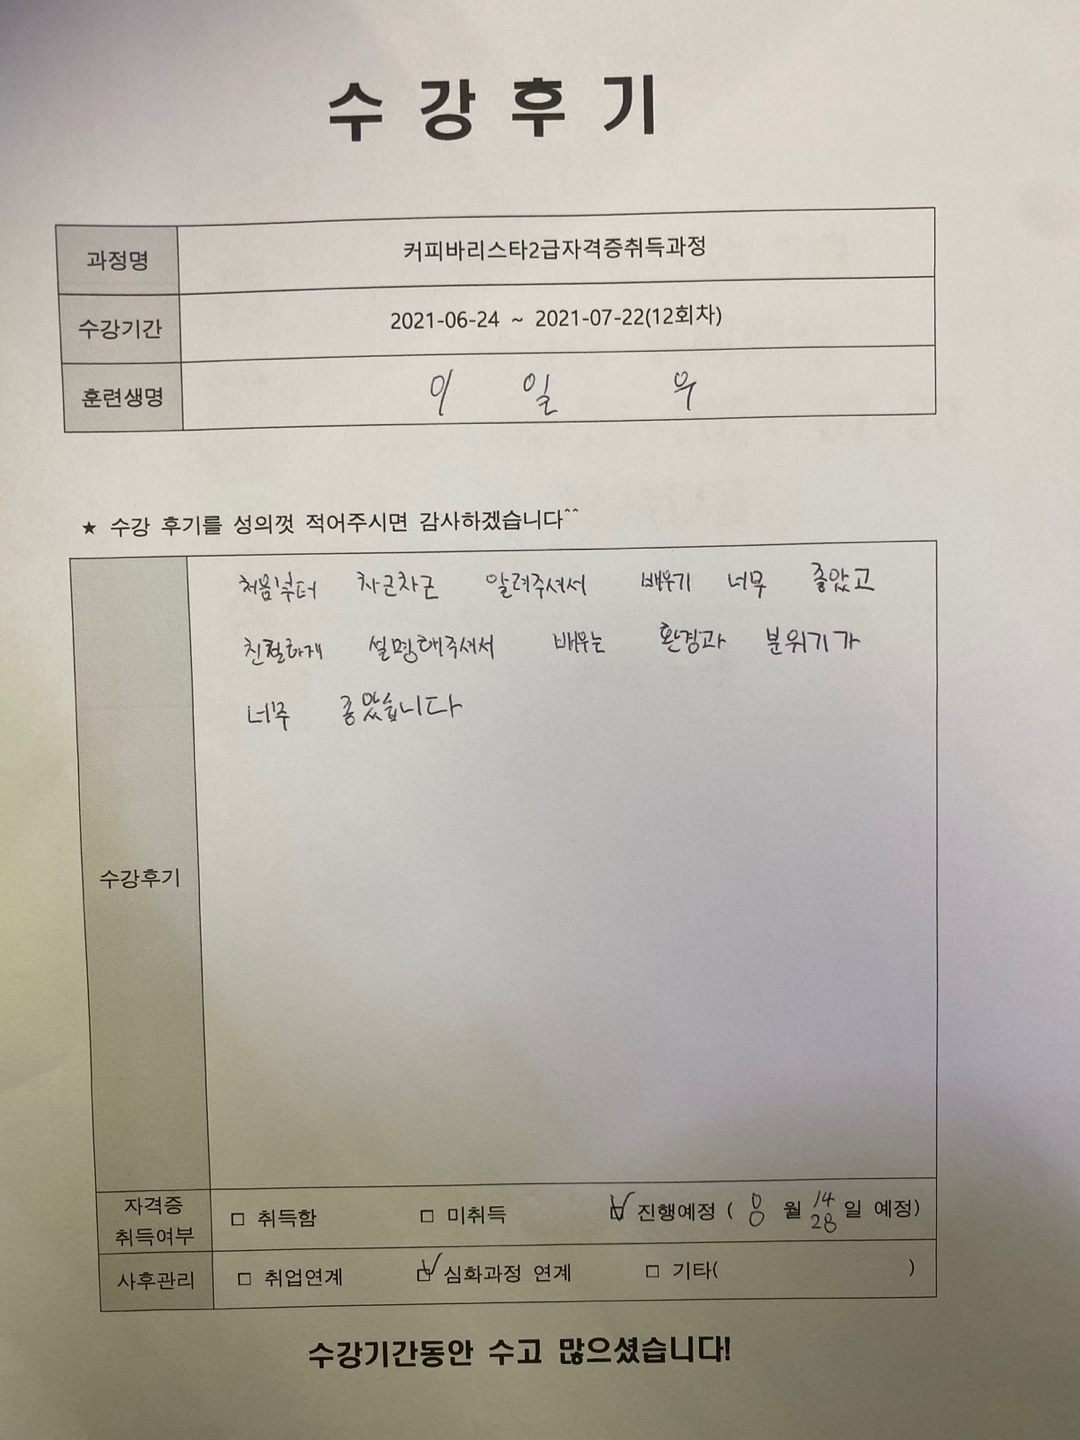 수강후기
과정명 커피바리스타2급자격증취득과정
수강기간 2021-06-24 ~ 2021-07-22(12회차)
훈련생명 이 일 우
★ 수강 후기를 성의껏 적어주시면 감사하겠습니다^^
처음부터 차근차근 알려주셔서 배우기 너무 좋았고
친절하게 설명해주셔서 배우는 환경과 분위기가
너무 좋았습니다
수강후기
자격증
취득여부
□ 취득함 □ 미취득 ☑ 진행예정 ( 월 14 28 일 예정)
사후관리 □ 취업연계 ☑ 심화과정 연계 □ 기타( )
수강기간동안 수고 많으셨습니다!